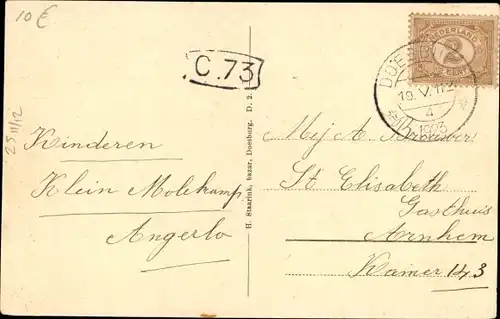 10 €
C.73
25 11/12
Kinderen
Klein Molekamp
Angerlo
H. Staarink, bazar, Doesburg. D. 2.
NEDERLAND
2
CENT
DOESBURG
19. V.
4
1923
Mej A. Brouwer
St Elisabeth
Gasthuis
Arnhem
Kamer 143